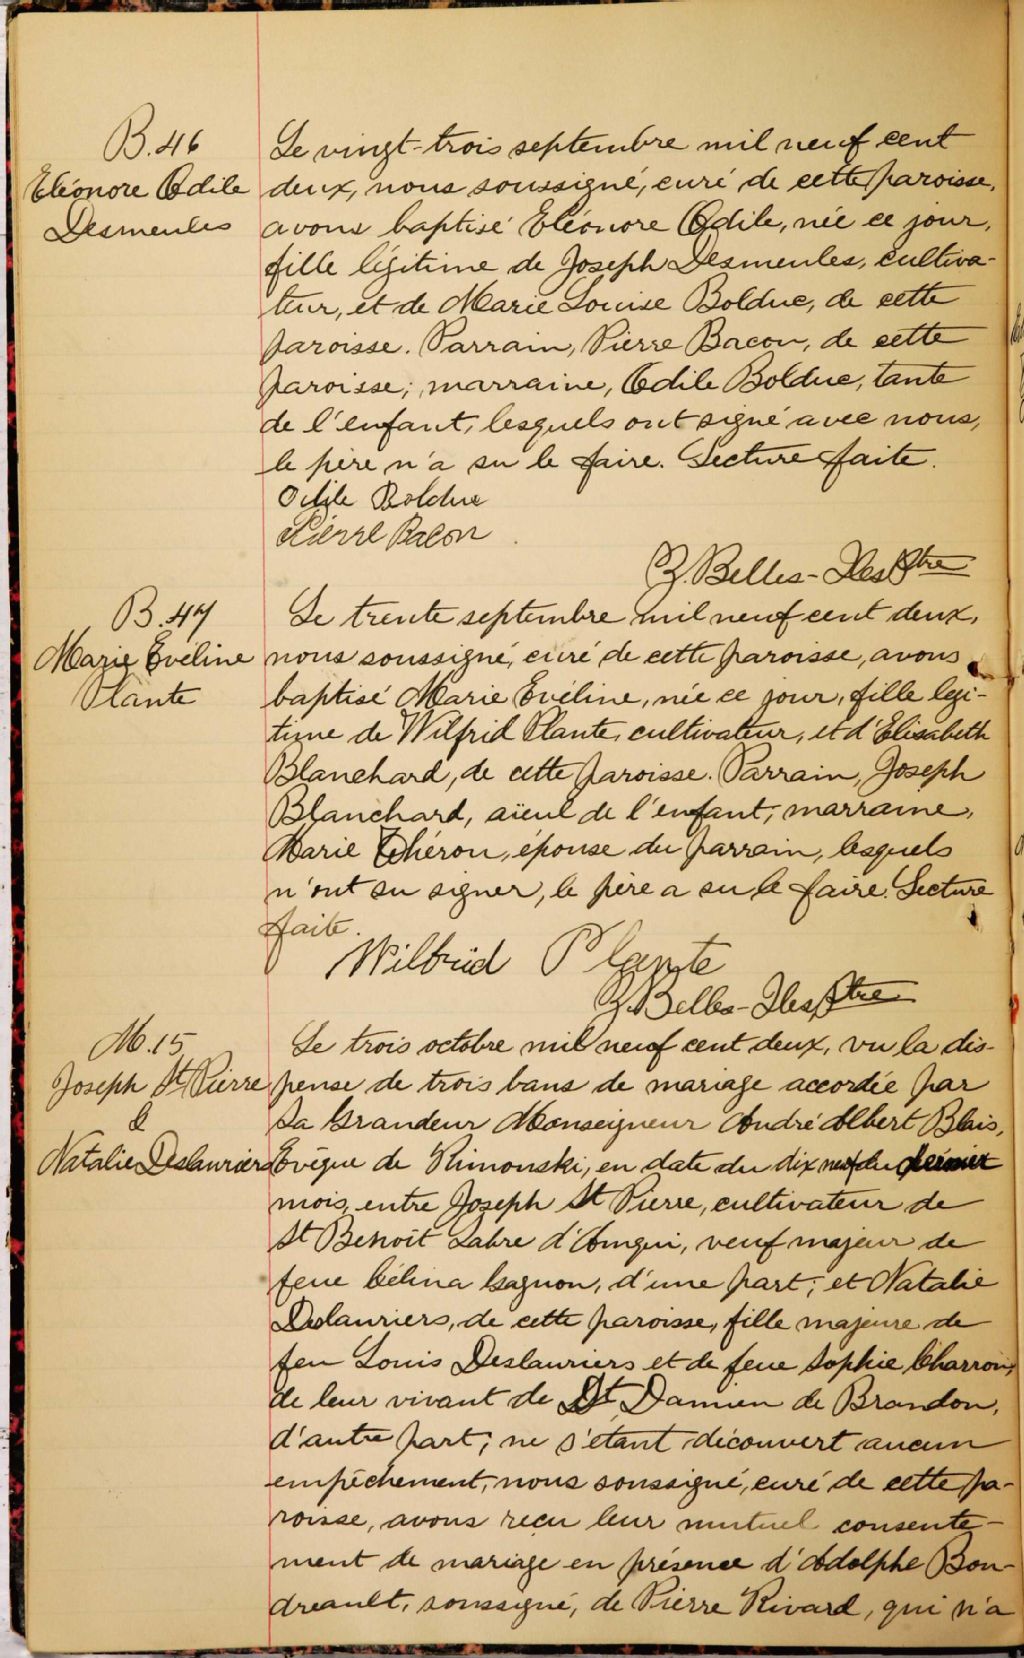 B.46
Eléonore Odile
Desmeules
Le vingt-trois septembre mil neuf cent
deux, nous soussigné, curé de cette paroisse,
avons baptisé Eléonore Odile, née ce jour,
fille légitime de Joseph Desmeules, cultiva-
teur, et de Marie Louise Bolduc, de cette
paroisse. Parrain, Pierre Bacon, de cette
paroisse; marraine, Odile Bolduc, tante
de l'enfant, lesquels ont signé avec nous,
le père n'a su le faire. Lecture faite.
Odile Bolduc
Pierre Bacon
Z. Belles-Iles Ptre
B.47
Marie Eveline
Plante
Le trente septembre mil neuf cent deux,
nous soussigné, curé de cette paroisse, avons
baptisé Marie Evéline, née ce jour, fille légi-
time de Wilfrid Plante, cultivateur, et d'Elisabeth
Blanchard, de cette paroisse. Parrain, Joseph
Blanchard, aïeul de l'enfant; marraine,
Marie Théron, épouse du parrain, lesquels
n'ont su signer, le père a su le faire. Lecture
faite.
Wilfrid Plante
Z. Belles-Iles, Ptre
M.15
Joseph St Pierre
&
Natalie Deslauriers
Le trois octobre mil neuf cent deux, vu la dis-
pense de trois bans de mariage accordée par
Sa Grandeur Monseigneur André Albert Blais,
Evêque de Rimouski, en date du dix neuf du dernier
mois, entre Joseph St Pierre, cultivateur de
St Benoît Labre d'Amqui, veuf majeur de
feue Célina Gagnon, d'une part; et Natalie
Deslauriers, de cette paroisse, fille majeure de
feu Louis Deslauriers et de feue Sophie Charron,
de leur vivant de St Damien de Brandon,
d'autre part; ne s'étant découvert aucun
empêchement, nous soussigné, curé de cette pa-
roisse, avons reçu leur mutuel consente-
ment de mariage en présence d'Adolphe Bou-
dreault, soussigné, de Pierre Rivard, qui n'a